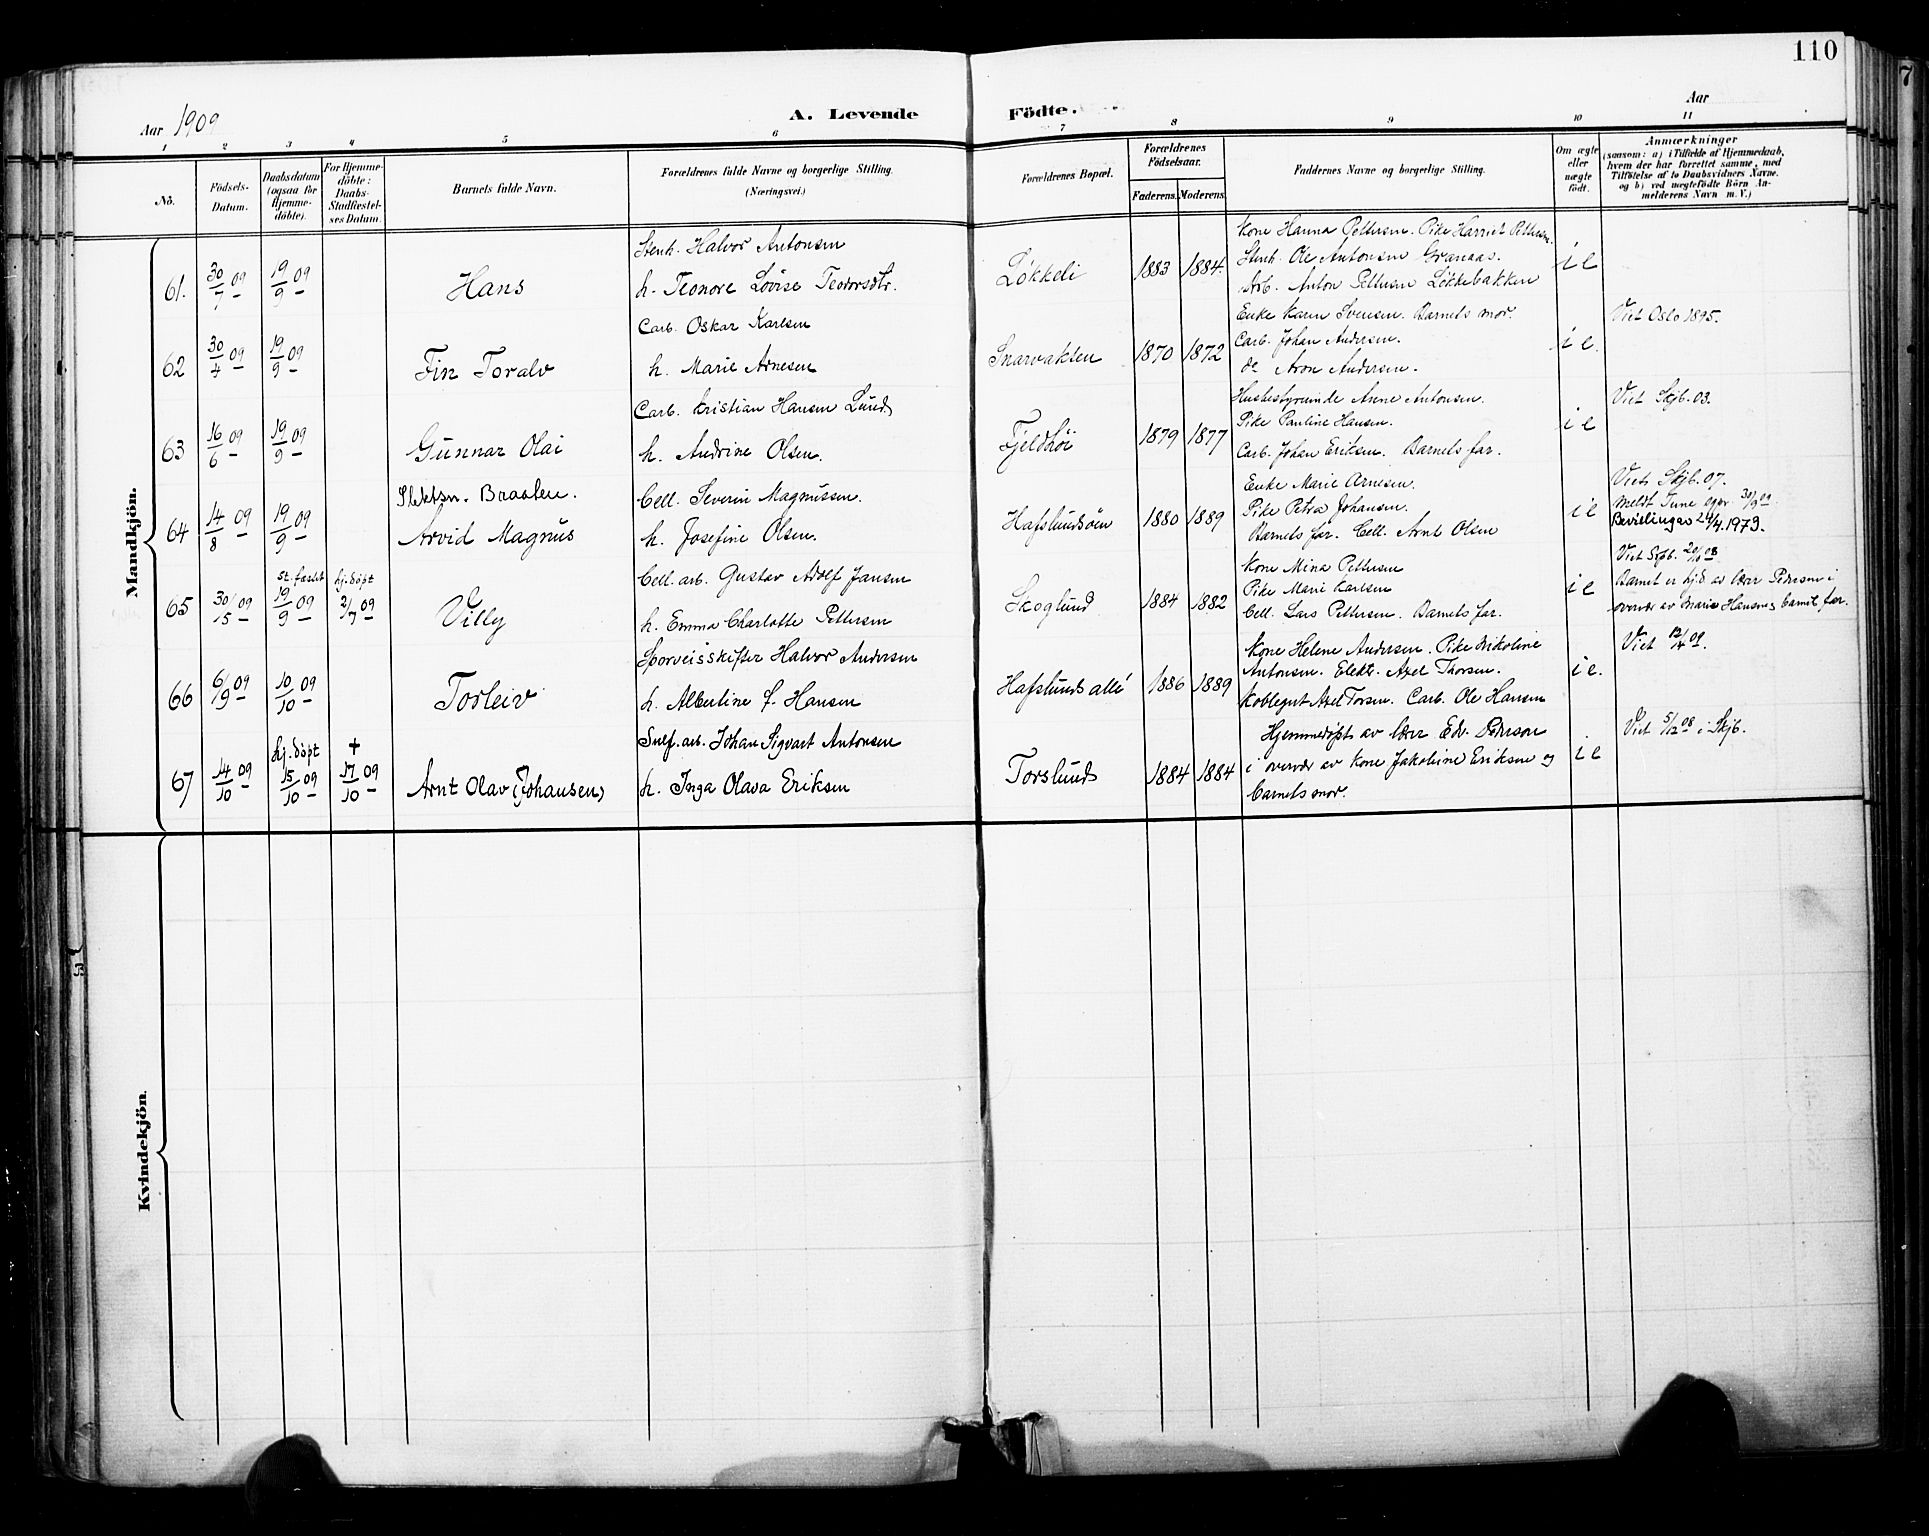 110
7
Aar 1909
A. Levende Födte.
Aar
1 2 3 4 5 6 7 8 9 10 11
No.
Födsels-Datum.
Daabsdatum (ogsaa for Hjemme-döbte).
For Hjemme-döbte: Daabs-Stadfæstel-ses Datum.
Barnets fulde Navn.
Forældrenes fulde Navne og borgerlige Stilling. (Næringsvei.)
Forældrenes Bopæl.
Forældrenes Födselsaar.
Faderens. Moderens.
Faddernes Navne og borgerlige Stilling.
Om ægte eller uægte födt.
Anmærkninger
(saasom: a) i Tilfælde af Hjemmedaab, hvem der har forrettet samme, med Tilföielse af to Daabsvidners Navne. og b) ved uægtefödte Börn An-melderens Navn m. V.)
Mandkjön.
61. 30/7 09 19/9 09 Hans
Stenh. Halvor Antonsen
h. Teonore Lovise Teodorsdtr.
Løkkeli 1883 1884.
Kone Hanna Pettersen. Pike Harriet Pettersen.
Stenh. Ole Antonsen Granaas.
Arb. Anton Pettersen Løkkebakken
i e
62 30/4 09 19/9 09 Fin Toralv
Carb. Oskar Karlsen
h. Marie Arnesen
Snarvakten 1870 1872
Enke Karen Svensen. Barnets mor.
Carb. Johan Andersen.
do Aron Andersen.
i e.
Viet Oslo 1895.
63 16/6 09 19/9 09 Gunnar Olai
Carb. Kristian Hansen Lund
h. Andrine Olsen.
Fjeldhøi 1879 1877
Husbestyrerinde Anne Antonsen.
Pike Pauline Hansen.
Carb. Johan Eriksen. Barnets far.
i e
Viet Skjb. 03.
64 14/8 09 19/9 09
Slektsn. Braaten.
Arvid Magnus
Cell. Severin Magnussen.
h. Josefine Olsen.
Hafslundsøen 1880 1889
Enke Marie Arnesen.
Pike Petra Johansen.
Barnets far. Cell. Arnt Olsen
i e
Viet Skjb. 07.
meldt Tune 30/9 09.
Bevillinger 24/4. 1973.
65 30/5 09
st.fæstet 19/9 09
hj.döpt 2/7 09
Villy
Cell. arb. Gustav Adolf Jansen
h. Emma Charlotte Pettersen
Skoglund 1884 1882
Kone Mina Pettersen
Pike Marie Karlsen
Cell. Lars Pettersen. Barnets far.
i e
Viet Skjb. 08
Barnet er hjd. av lærer Pedersen i
overvær av Marie Hansen & barnets far.
66 6/9 09 10/10 09 Torleiv
Sporveisskifter Halvor Andersen
h. Albertine f. Hansen
Hafslunds allé 1886 1889
Kone Helene Andersen. Pike Nikoline
Antonsen. Elektr. Axel Thorsen.
Axel Torsen. Carb. Ole Hansen
i e.
Viet 12/4 09.
67 14/10 09
hj. döpt 15/10 09
+ 17/10 09
Arnt Olav (Johansen)
Snef. arb. Johan Sigvart Antonsen
h. Inga Olava Eriksen
Torslund 1884 1884
Hjemmedøpt av lærer Edv. Pedersen
i overvær av kone Jakobine Eriksen og
barnets mor.
i e
Viet 5/12 08 i Skjb.
Kvindekjön.